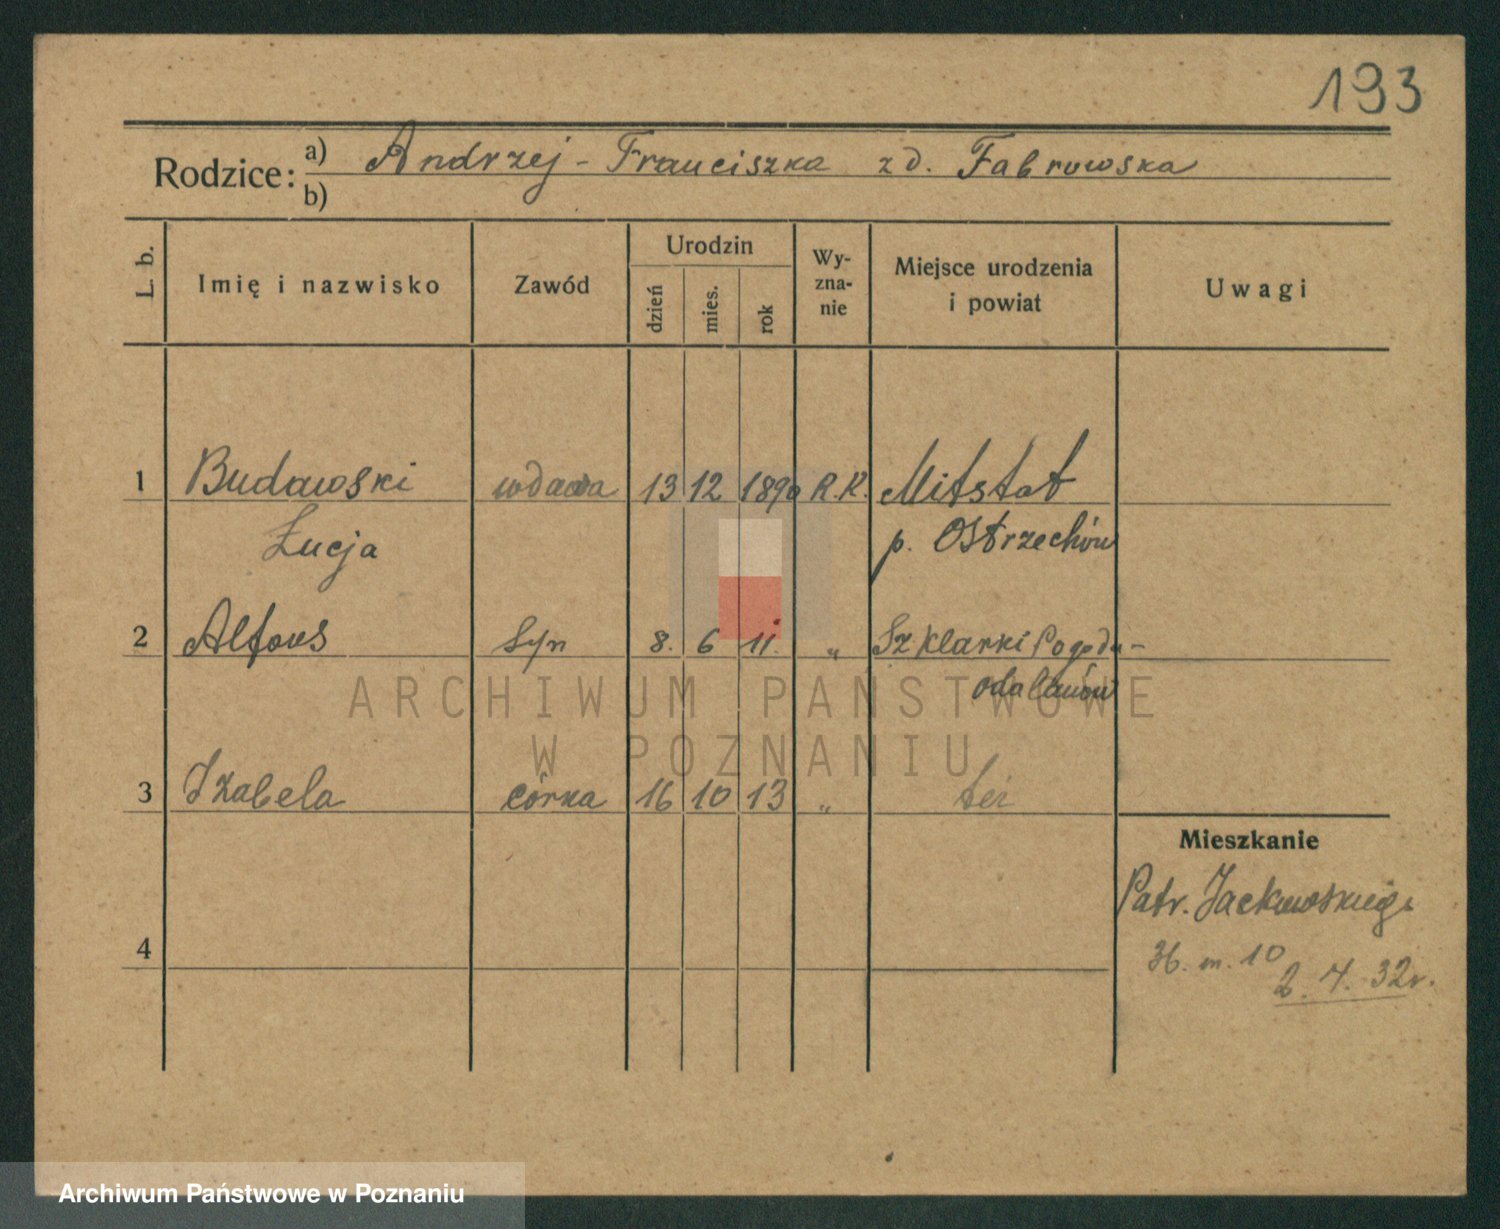 193
Rodzice: a) Andrzej - Franciszka zd. Fabrowska
b)
L. b. Imię i nazwisko Zawód Urodzin dzień mies. rok Wy-zna-nie Miejsce urodzenia i powiat Uwagi
1 Budowski wdowa 13 12 1890 R.K. Mitstat
Łucja p. Ostrzechów
2 Alfons Syn 8. 6 11. „ Szklarki
odalanów
ARCHIWUM PAŃSTWOWE
W POZNANIU
3 Izabela córka 16 10 13 „ też
Mieszkanie
Patr. Jackowskiego
4 36. m. 10
2. 4. 32r.
Archiwum Państwowe w Poznaniu